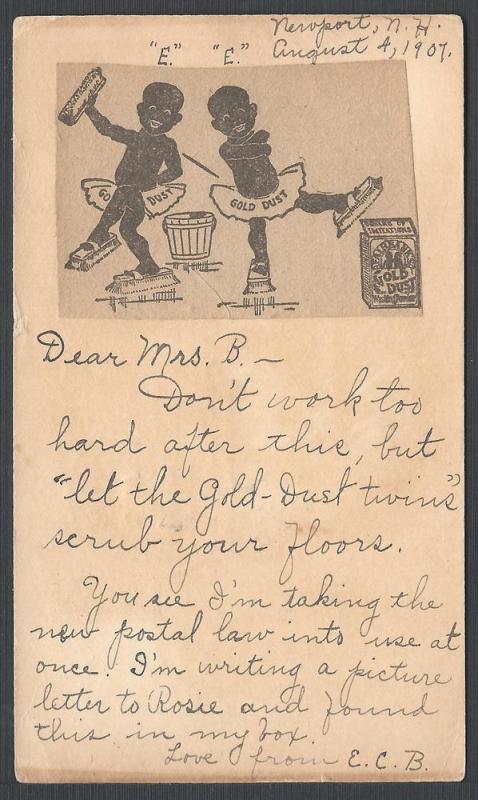 Newport, N. H.
August 4, 1907.
"E." "E."
GO DUST
GOLD DUST
BEWARE OF
IMITATIONS
FAIRBANK'S
GOLD
DUST
Washing Powder
Dear Mrs. B. —
Don't work too
hard after this, but
"let the Gold-Dust twins"
scrub your floors.
You see I'm taking the
new postal law into use at
once. I'm writing a picture
letter to Rosie and found
this in my box.
Love from E. C. B.